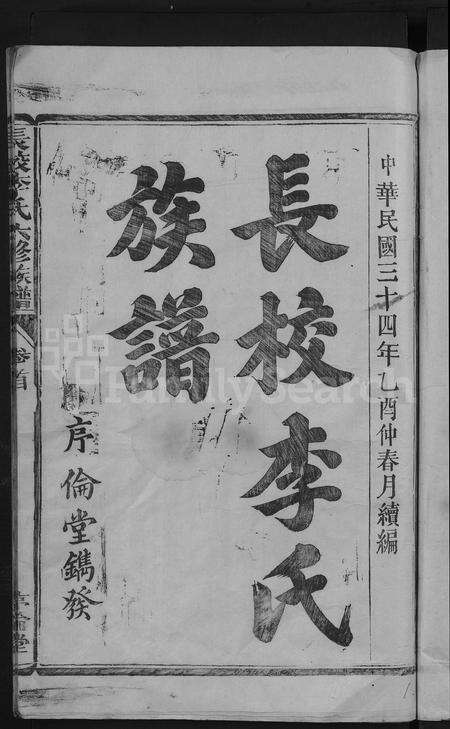 中華民國三十四年乙酉仲春月續編
長校李氏
族譜
序倫堂鐫發
長校李氏六修族譜
卷首
序倫堂
FamilySearch
1